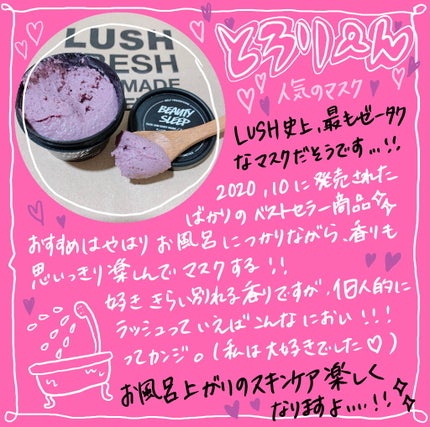 とろりーん
LUSH
FRESH
MADE
BEAUTY
SLEEP
人気のマスク
LUSH史上、最もゼータク
なマスクだそうです...!!
2020,10に発売された
ばかりのベストセラー商品
おすすめはやはりお風呂につかりながら、香りも
思いっきり楽しんでマスクする!!
好ききらい別れる香りですが、個人的に
ラッシュっていえばこんなにおい!!!
ってカンジ。(私は大好きでした♡)
お風呂上がりのスキンケア楽しく
なりますよ....!!